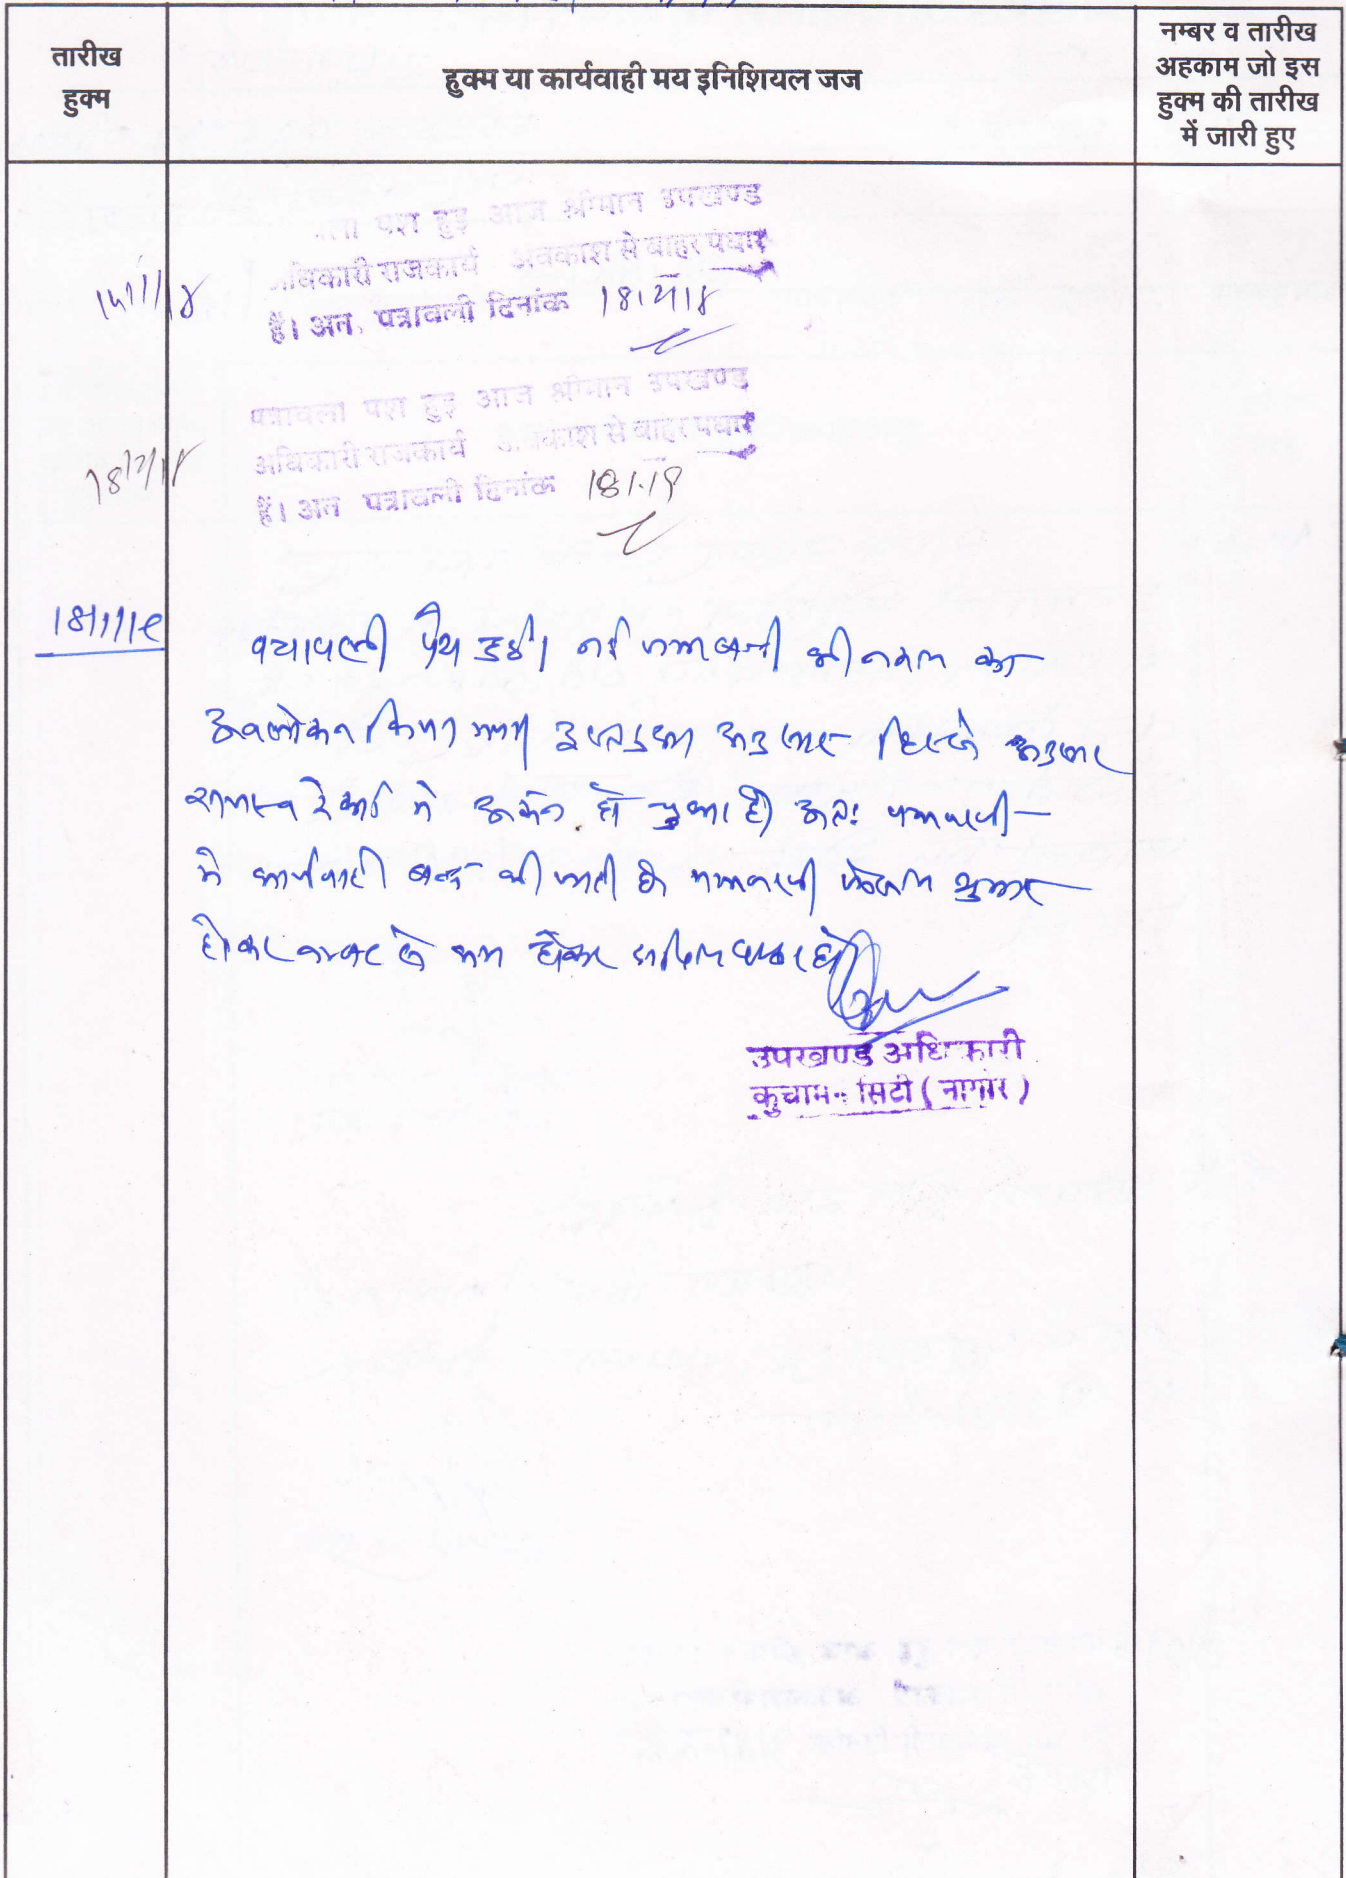 तारीख
हुक्म
हुक्म या कार्यवाही मय इनिशियल जज
नम्बर व तारीख
अहकाम जो इस
हुक्म की तारीख
में जारी हुए
पेश हुई आज श्रीमान उपखण्ड
अधिकारी राजकार्य अवकाश से बाहर पधारे
हैं। अतः पत्रावली दिनांक 18/12/18
पत्रावली पेश हुई आज श्रीमान उपखण्ड
18/12/18
अधिकारी राजकार्य अवकाश से बाहर पधारे
हैं। अतः पत्रावली दिनांक 18.1.19
18/1/19
पत्रावली पेश हुई। नई जमाबन्दी की नकल का
अवलोकन किया गया।
रेकार्ड में अमल हो चुका है। अतः पत्रावली
में कार्यवाही बन्द की जाती है। पत्रावली फैसल शुमार
होकर नम्बर से कम होकर दाखिल दफ्तर हो।
उपखण्ड अधिकारी
कुचामन सिटी (नागौर)